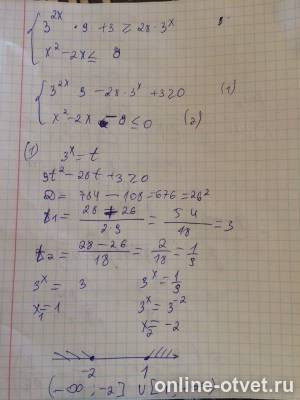 3^{2x} · 9 + 3 ≥ 28 · 3^x
x² - 2x ≤ 8
3^{2x} 9 - 28 · 3^x + 3 ≥ 0 (1)
x² - 2x - 8 ≤ 0 (2)
(1) 3^x = t
9t² - 28t + 3 ≥ 0
D = 784 - 108 = 676 = 26²
t1 = (28 + 26)/(2·9) = 54/18 = 3
t2 = (28 - 26)/18 = 2/18 = 1/9
3^x = 3 3^x = 1/9
x1 = 1 3^x = 3^{-2}
x2 = -2
-2 1
(-∞; -2] ∪ [
online-otvet.ru